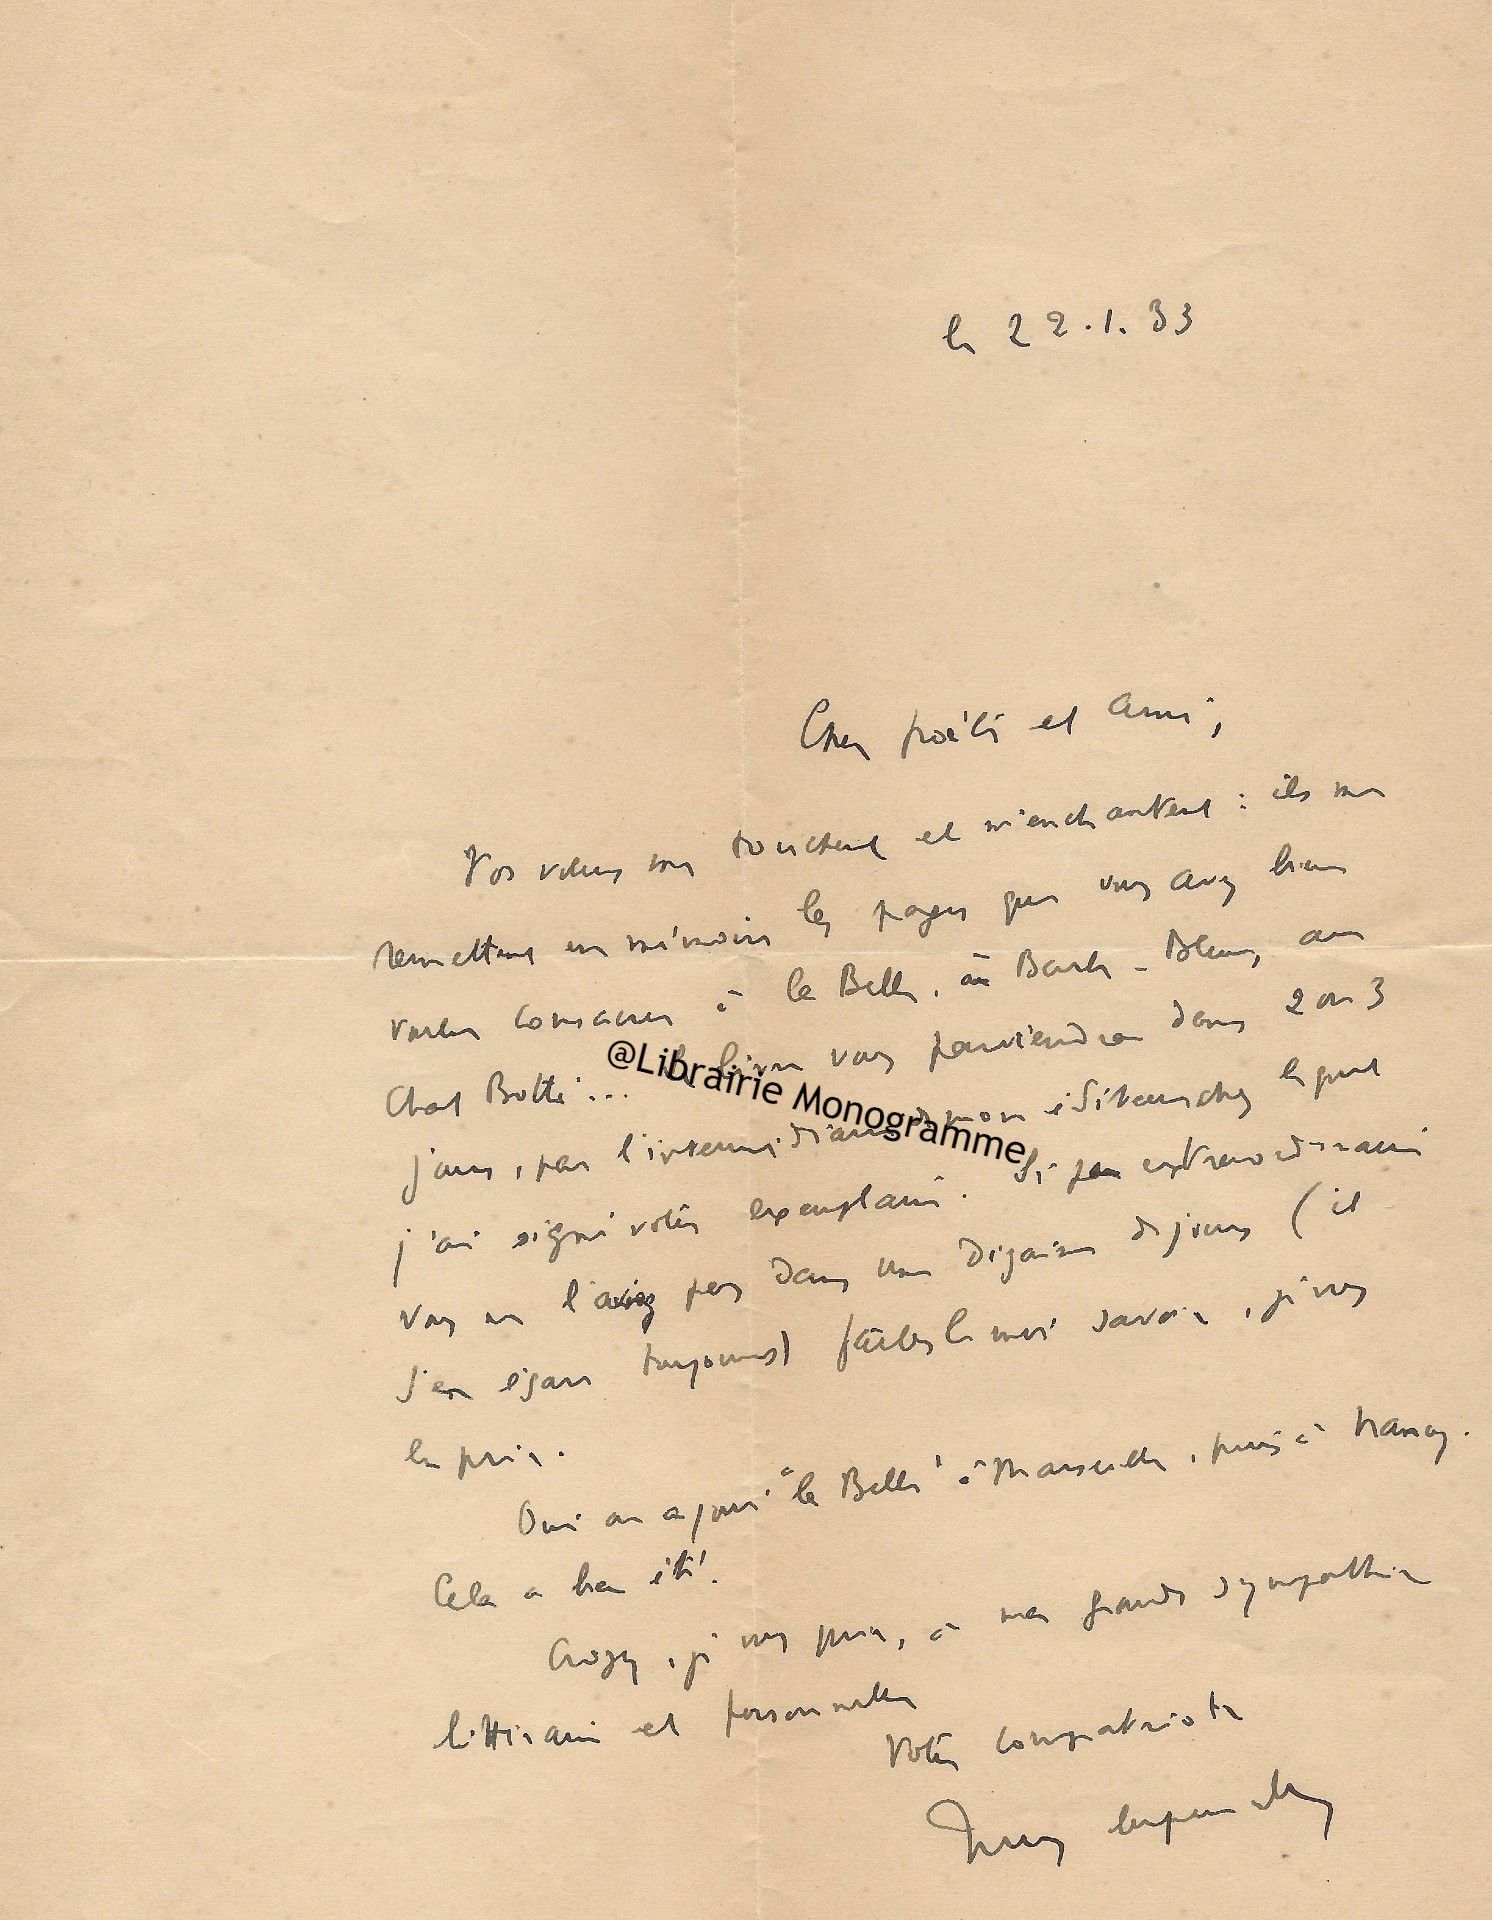 le 22.1.33
Cher poète et Ami,
Vos vœux me touchent et m'enchantent : ils me
remettent en mémoire les pages que vous avez bien
voulu consacrer à la Belle, à Barbe-Bleue, au
Chat Botté... Le livre vous parviendra dans 2 ou 3
@Librairie Monogramme
jours, par l'intermédiaire de mon éditeur chez lequel
j'ai signé votre exemplaire. Si par extraordinaire
vous ne l'aviez pas dans une dizaine de jours (il
s'en égare toujours) faites le moi savoir, je vous
en prie.
Oui on a joué "la Belle" à Marseille, puis à Nancy.
Cela a bien été.
Croyez, je vous prie, à ma grande sympathie
littéraire et personnelle
Votre compatriote
Jules Supervielle